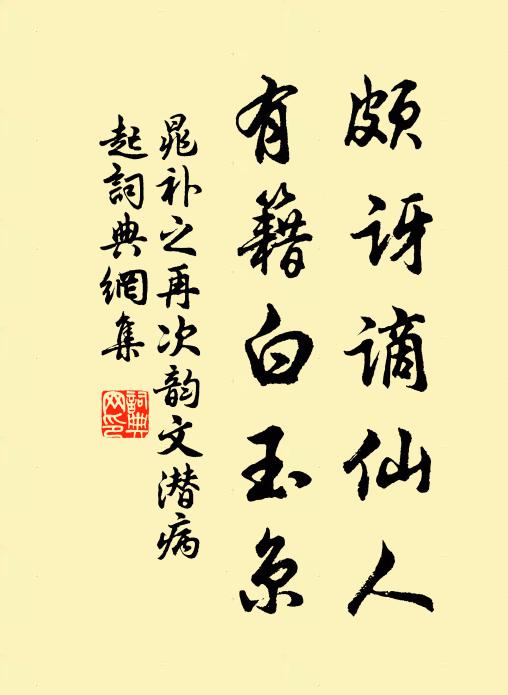 颇讶谪仙人
有籍白玉京
晁补之再次韵文潜病
起词典網集
詞典網印